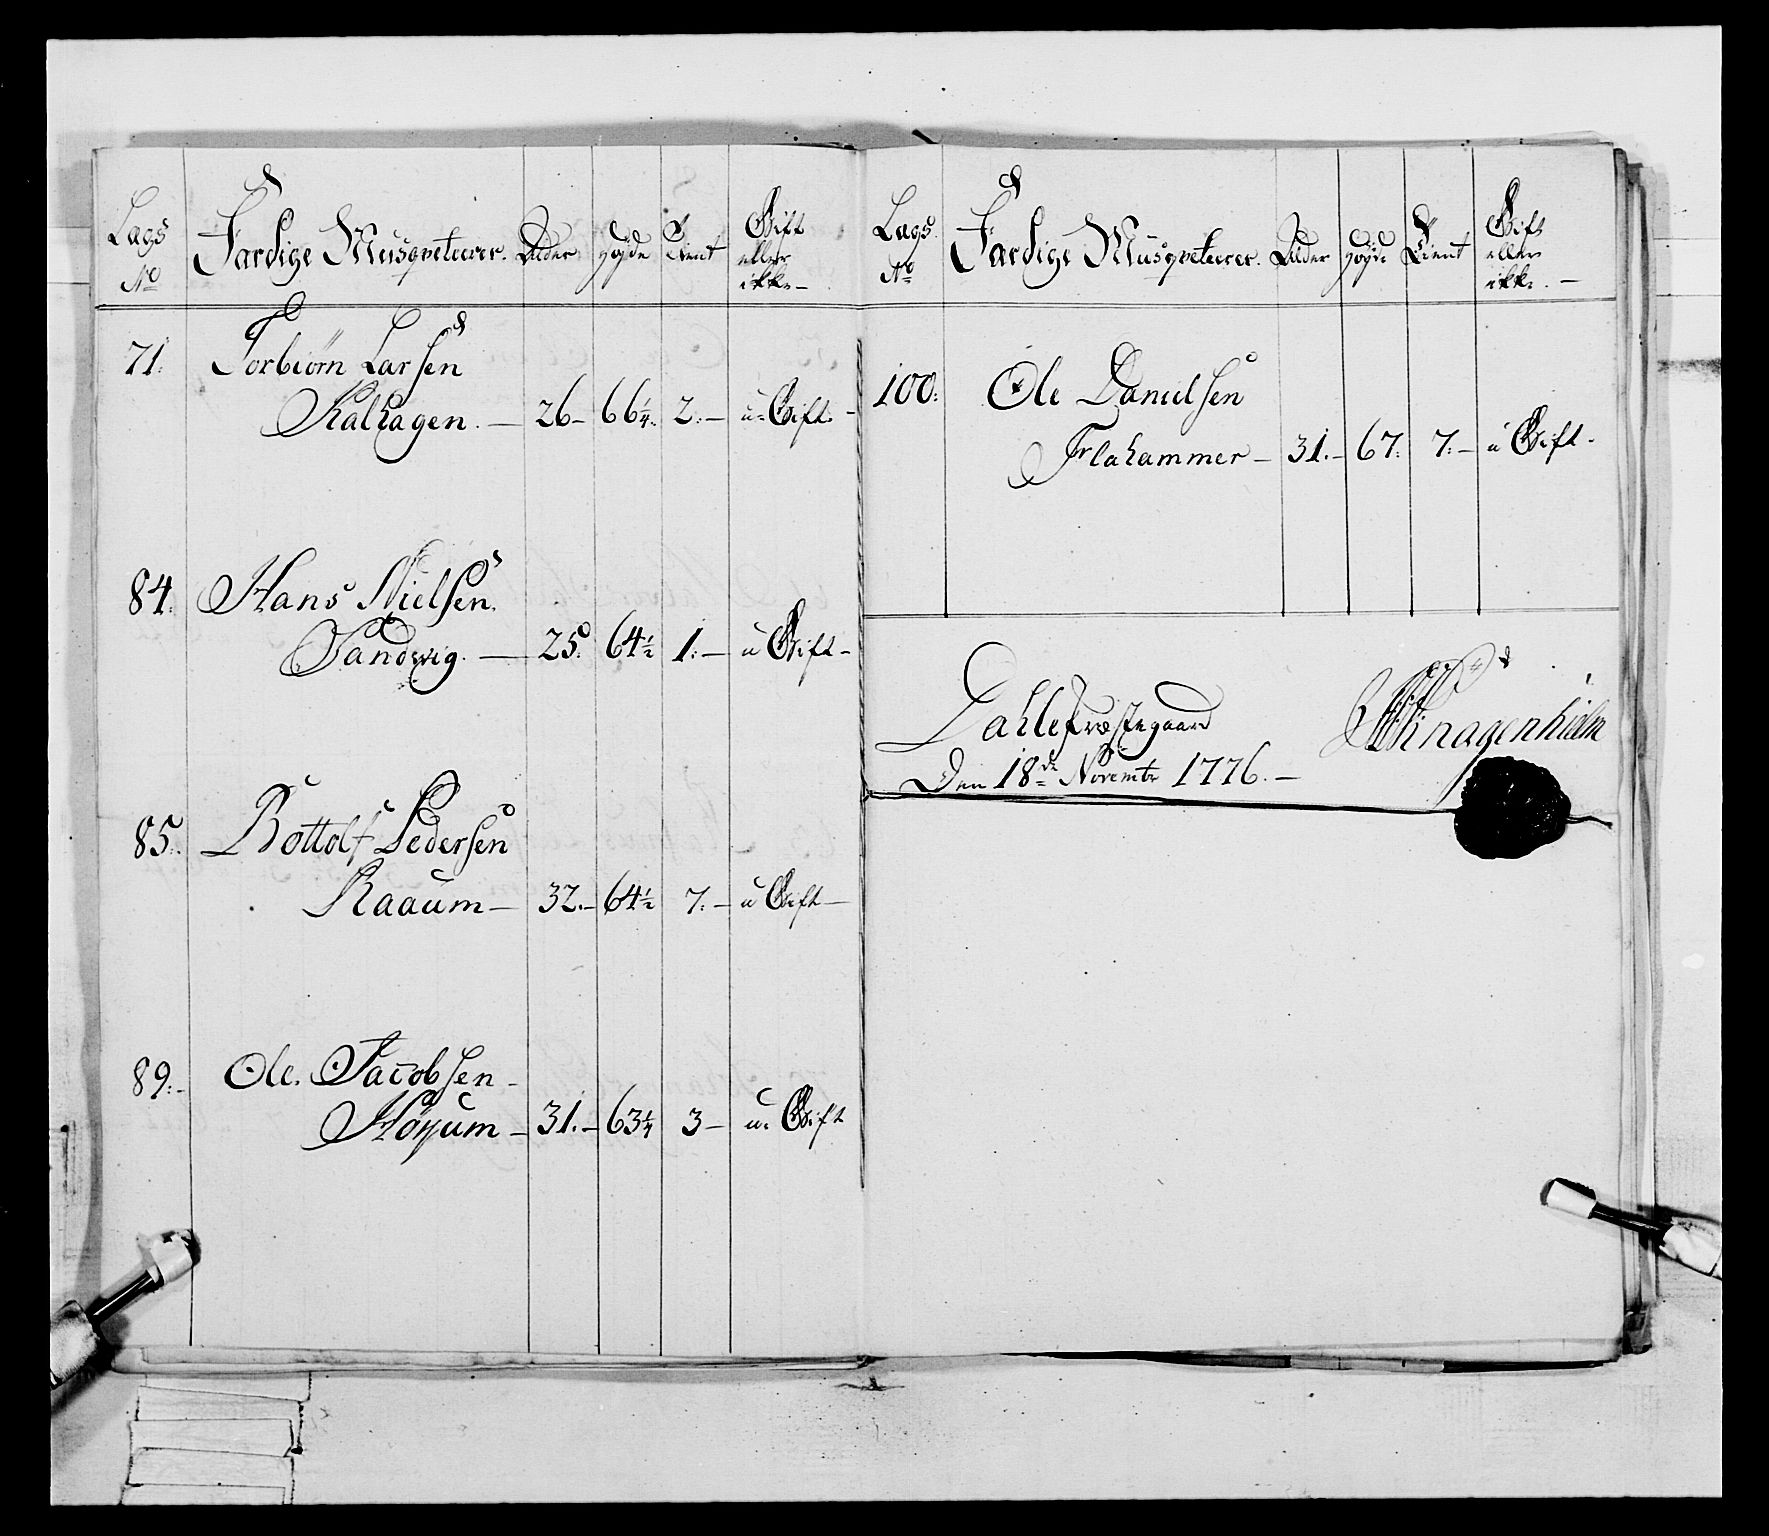 Lags No Færdige Musqveteerer. Alder Høyde Tient Gift eller ikke –
71: Torbiørn Larsen
Kalhagen. – 26 – 66 1/4: 2: – u: Gift. –
84: Hans Nielsen.
Sandwig. – 25: 64 1/2 1: – u Gift –
85: Bottolf Pedersen
Raaum – 32. – 64 1/2 7: – u Gift –
89: – Ole Jacobsen –
Høyum – 31. – 63 1/4 3 – u. Gift
Lags No Færdige Musqveteerer. Alder Høyde Tient Gift eller ikke. –
100: Ole Danielsen
Flahammer – 31. – 67: 7: – u Gift –
Dahle Præstegaard
Den 18de Novembr 1776. –
Knagenhielm